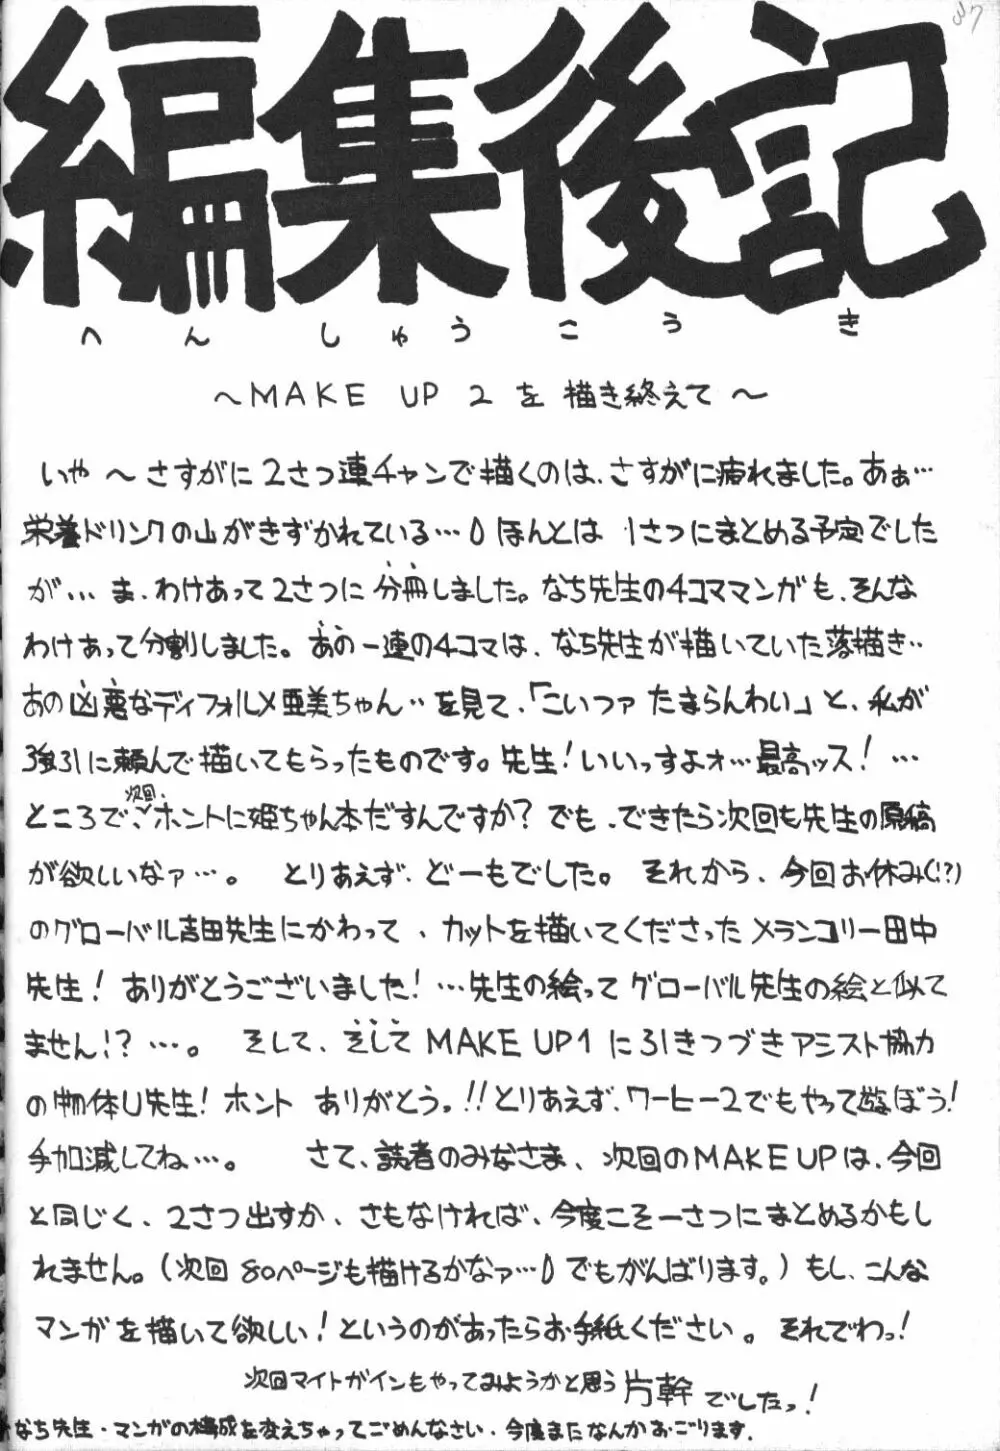 37
編集後記
へんしゅうこうき
～MAKE UP 2 を 描き終えて～
いや～さすがに2さつ連チャンで描くのは、さすがに疲れました。あぁ…
栄養ドリンクの山がきずかれている… ほんとは 1さつにまとめる予定でした
が… ま、わけあって2さつに分冊しました。なち先生の4コママンガも、そんな
わけあって分割しました。あの一連の4コマは、なち先生が描いていた落描き…
あの凶悪なディフォルメ亜美ちゃん…を見て、「こいつァ たまらんわい」と、私が
強引に頼んで描いてもらったものです。先生！いいっすよォ…最高ッス！…
ところで、次回、ホントに姫ちゃん本だすんですか？でも、できたら次回も先生の原稿
が欲しいなァ…。 とりあえず、どーもでした。 それから、今回お休み(!?)
のグローバル吉田先生にかわって、カットを描いてくださったメランコリー田中
先生！ありがとうございました！…先生の絵ってグローバル先生の絵と似て
ません!?…。 そして、そしてMAKE UP1に引きつづきアシスト協力
の物体U先生！ホント ありがとう。!!とりあえず、ワーヒー2でもやって遊ぼう！
手加減してね…。 さて、読者のみなさま、次回のMAKE UPは、今回
と同じく、2さつ出すか、さもなければ、今度こそ一さつにまとめるかもし
れません。(次回80ページも描けるかなァ… でもがんばります。)もし、こんな
マンガを描いて欲しい！というのがあったらお手紙ください。それでわっ！
次回マイトガインもやってみようかと思う 片幹 でしたっ！
なち先生・マンガの構成を変えちゃってごめんなさい・今度またなんかおごります.